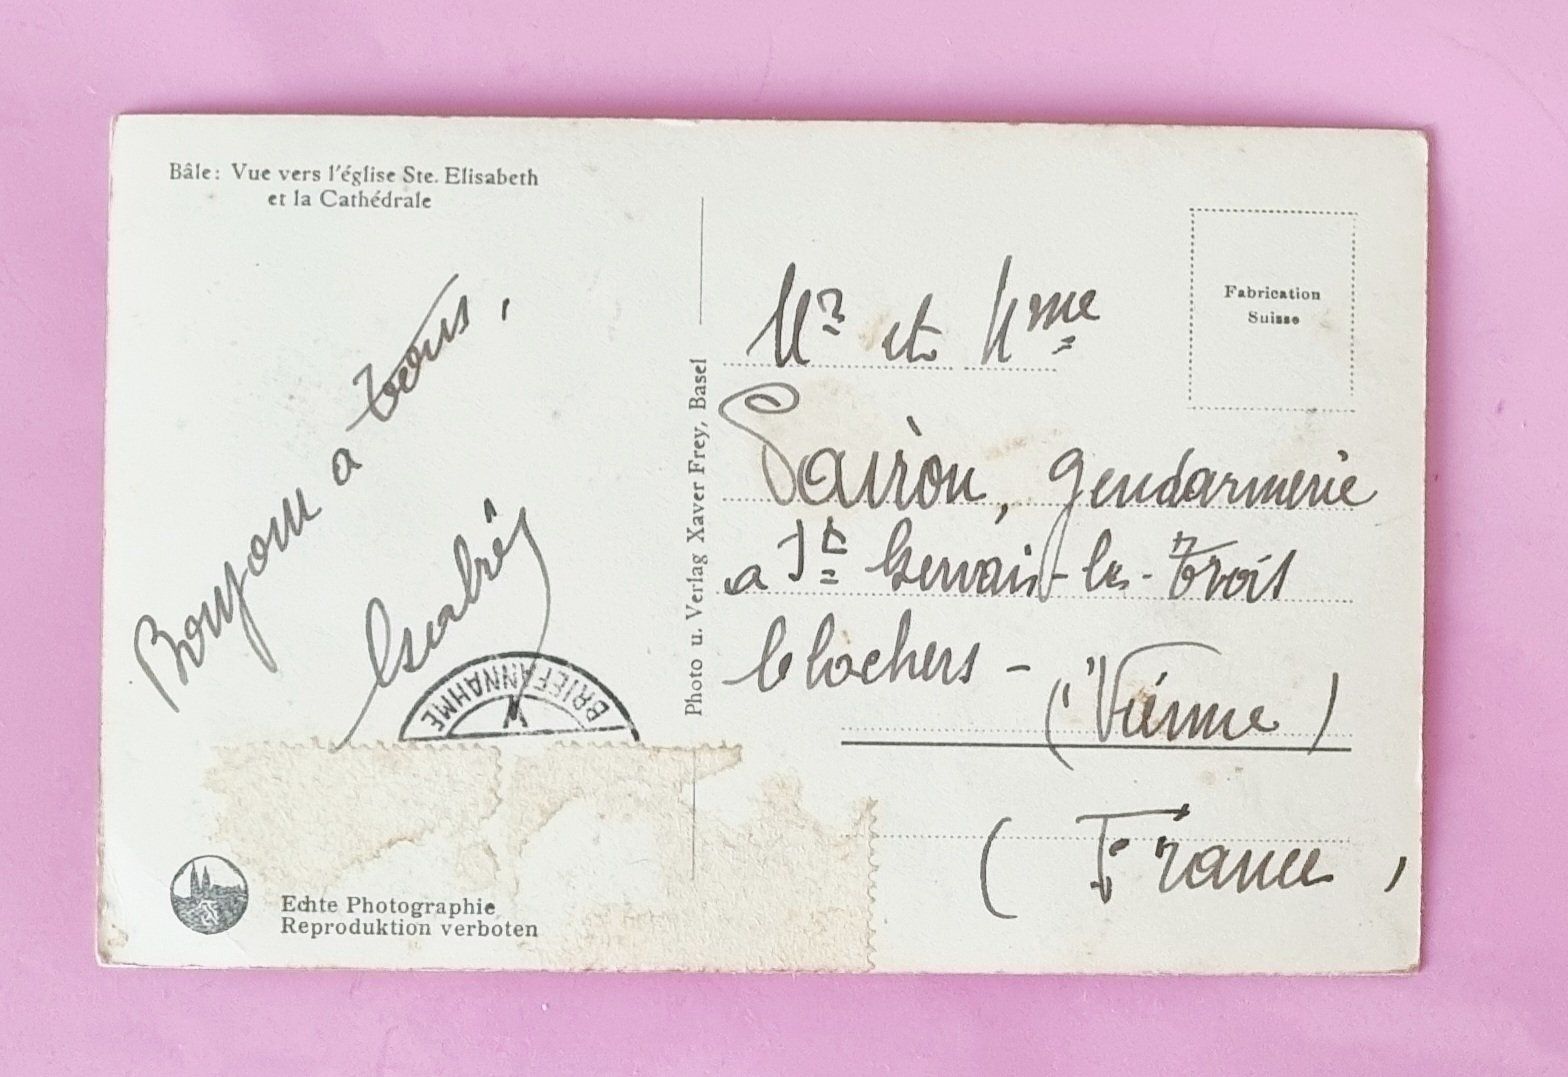 Bâle: Vue vers l'église Ste. Elisabeth
et la Cathédrale
Bonjour a tous,
BRIEFANNAHME
X
Echte Photographie
Reproduktion verboten
Photo u. Verlag Xaver Frey, Basel
Fabrication
Suisse
Mr et Mme
gendarmerie
a St Gervais-les-Trois
Clochers -
(Vienne)
(France,